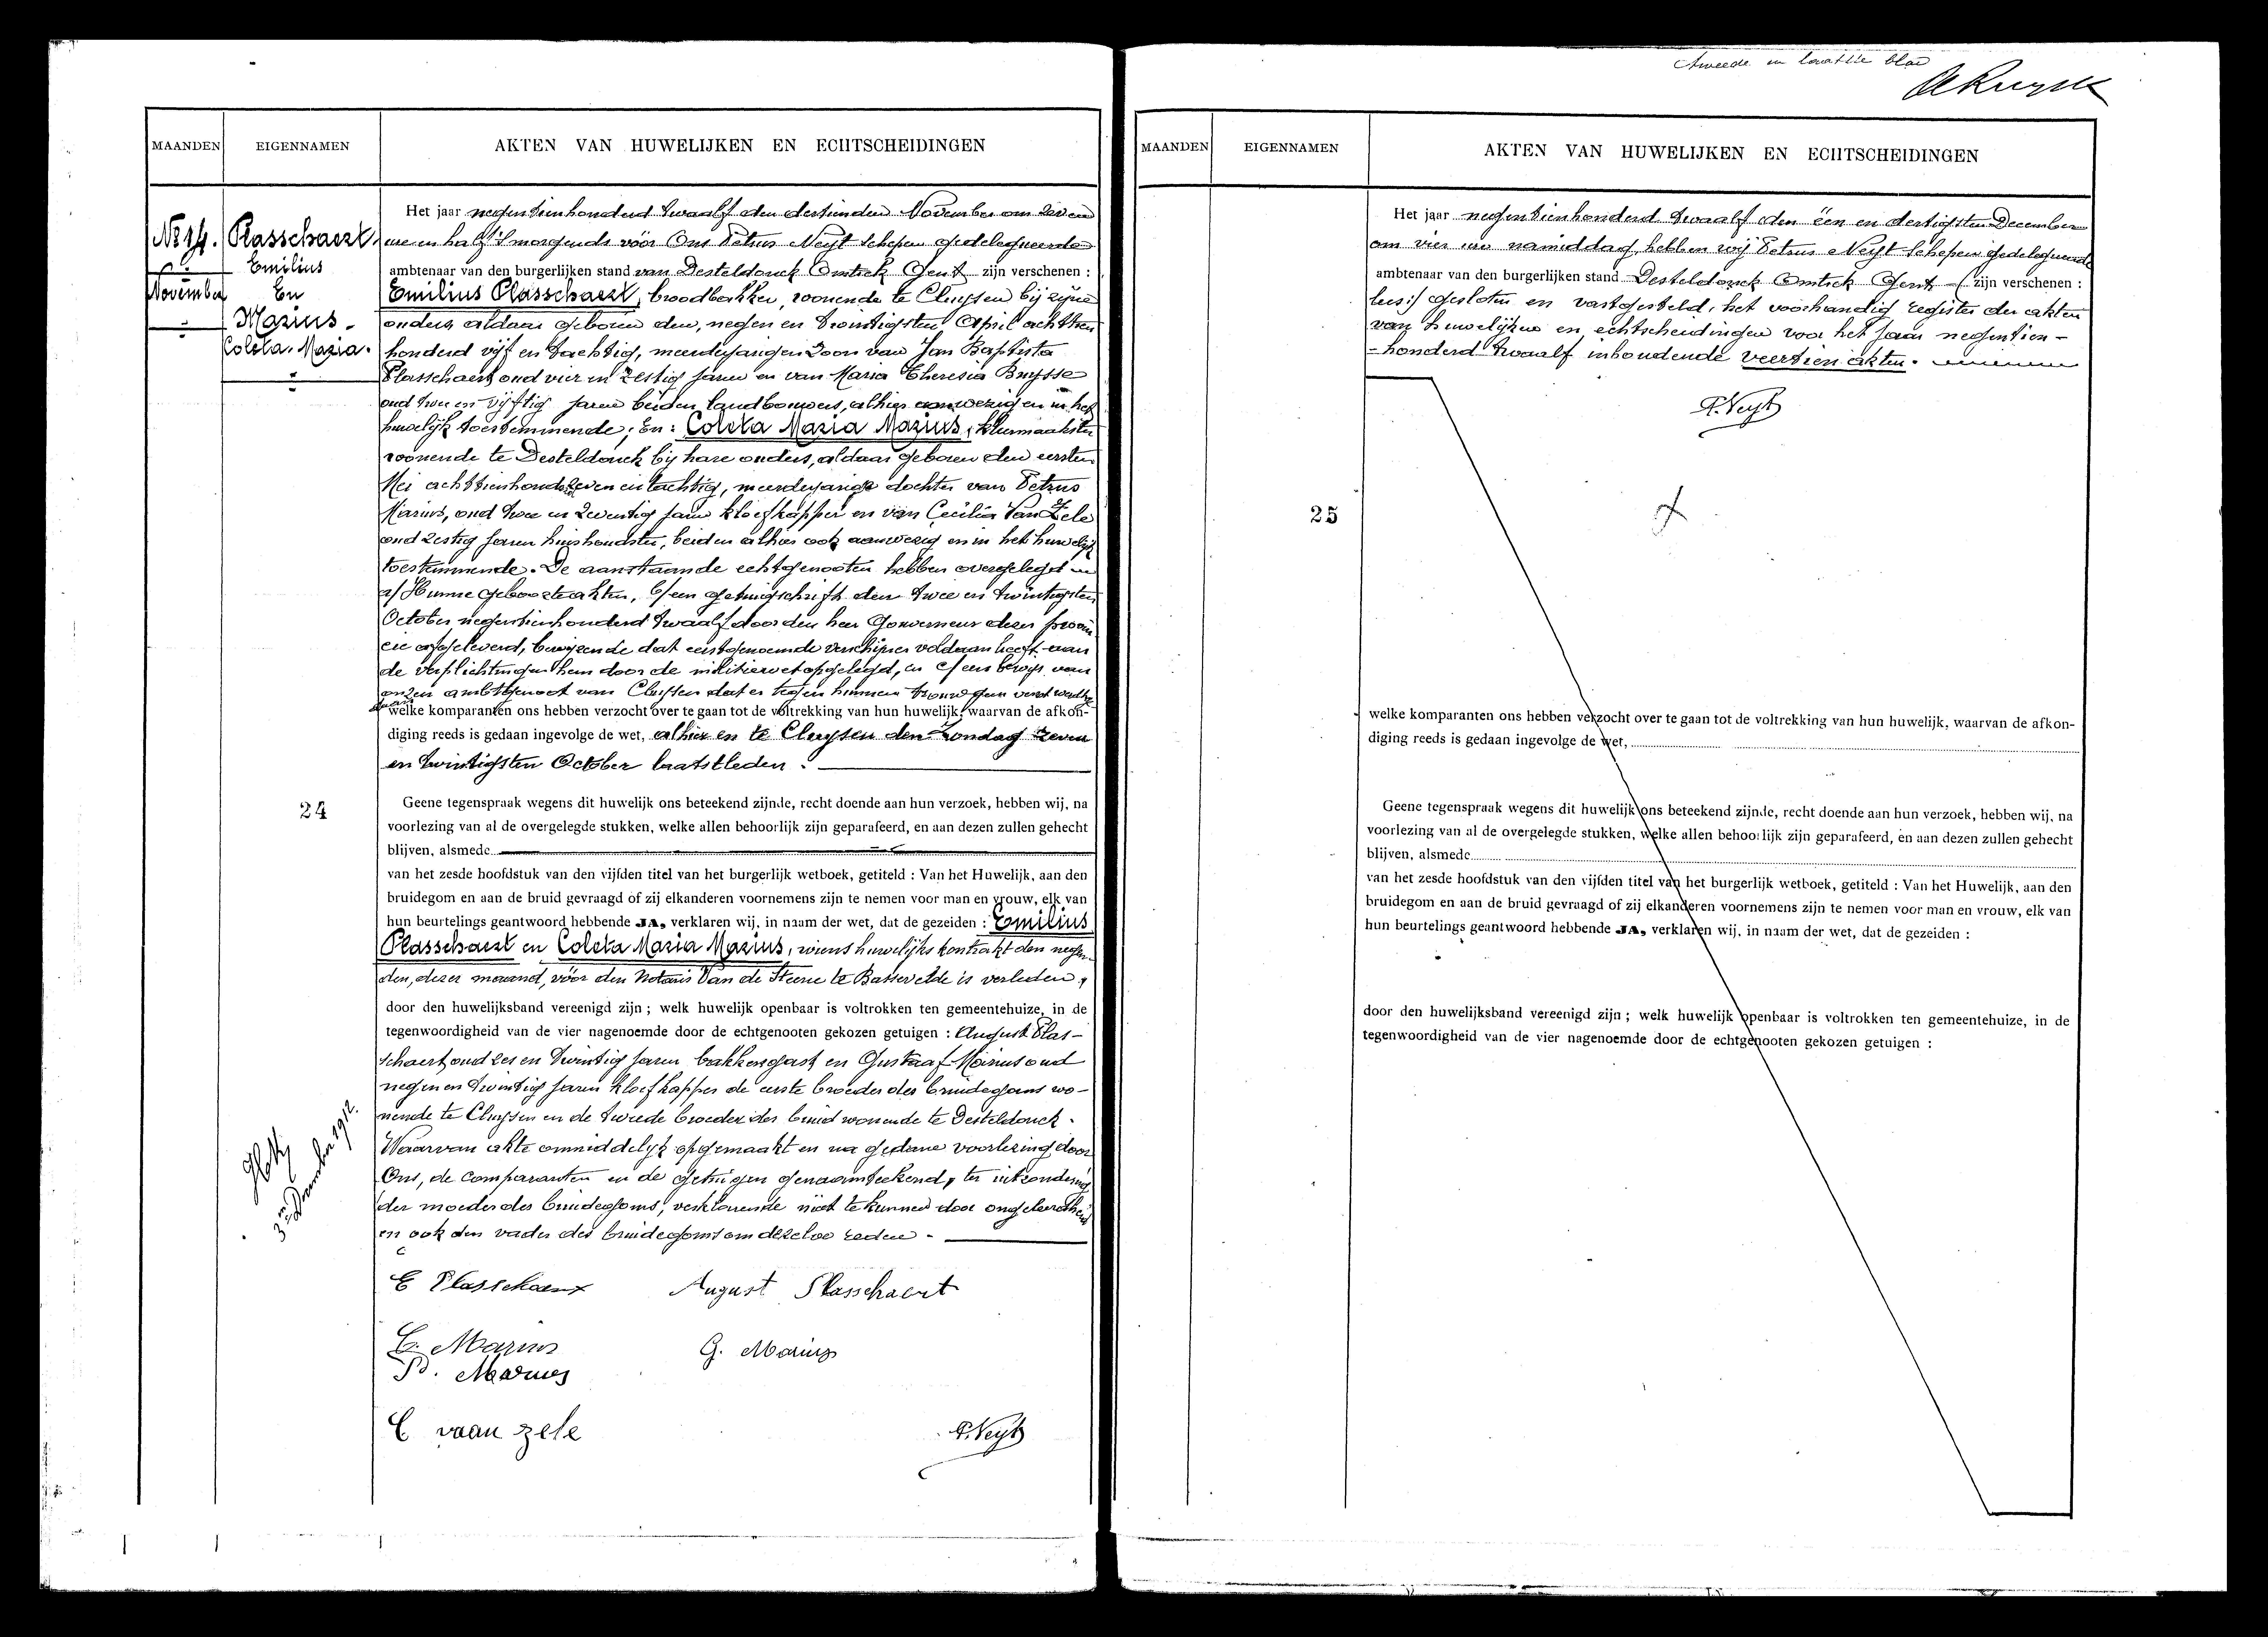 MAANDEN EIGENNAMEN AKTEN VAN HUWELIJKEN EN ECHTSCHEIDINGEN
Nº 14.
November
Plasschaert
Emilius
En
Marius
Coleta. Maria.
Het jaar negentienhonderd twaalf den dertienden November om zeven
ure en half 's morgends vóór Ons Petrus Neyt Schepen gedelegueerde
ambtenaar van den burgerlijken stand van Desteldonck Omtrek Gent zijn verschenen :
Emilius Plasschaert, broodbakker, wonende te Cluysen bij zijne
ouders, aldaar geboren den negen en twintigsten April achttien
honderd vijf en tachtig, meerderjarigen zoon van Jan Baptista
Plasschaert oud vier en zestig jaren en van Maria Theresia Buysse
oud twee en vijftig jaren beiden landbouwers, alhier aanwezig en in het
huwelijk toestemmende; En: Coleta Maria Marius, kleermaakster
wonende te Desteldonck bij hare ouders, aldaar geboren den eersten
Mei achttienhonderd zeven en tachtig, meerderjarige dochter van Petrus
Marius, oud twee en zeventig jaren kloefkapper en van Cecilia Van Zele
oud zestig jaren huishoudster, beiden alhier ook aanwezig en in het huwelijk
toestemmende. De aanstaande echtgenooten hebben overgelegd
a/ Hunne geboorteakten, b/ een getuigschrift den twee en twintigsten
October negentienhonderd twaalf door den heer Gouverneur dezer provin
cie afgeleverd, bewijzende dat eerstgenoemde verschijner voldaan heeft aan
de verplichtingen hem door de militiewet opgelegd, en c/ een bewijs van
onzen ambtgenoot van Cluysen dat er tegen hunnen trouw geen verzet werd
welke komparanten ons hebben verzocht over te gaan tot de voltrekking van hun huwelijk, waarvan de afkon-
diging reeds is gedaan ingevolge de wet, alhier en te Cluysen den Zondag zeven
en twintigsten October laatstleden.
24
Geene tegenspraak wegens dit huwelijk ons beteekend zijnde, recht doende aan hun verzoek, hebben wij, na
voorlezing van al de overgelegde stukken, welke allen behoorlijk zijn geparafeerd, en aan dezen zullen gehecht
blijven, alsmede
van het zesde hoofdstuk van den vijfden titel van het burgerlijk wetboek, getiteld : Van het Huwelijk, aan den
bruidegom en aan de bruid gevraagd of zij elkanderen voornemens zijn te nemen voor man en vrouw, elk van
hun beurtelings geantwoord hebbende JA, verklaren wij, in naam der wet, dat de gezeiden : Emilius
Plasschaert en Coleta Maria Marius, wiens huwelijks kontrakt den negen-
den, dezer maand, vóór den Notaris Van de Steene te Bassevelde is verleden,
door den huwelijksband vereenigd zijn ; welk huwelijk openbaar is voltrokken ten gemeentehuize, in de
tegenwoordigheid van de vier nagenoemde door de echtgenooten gekozen getuigen : August Plas-
schaert oud zes en twintig jaren bakkersgast en Gustaaf Marius oud
negen en twintig jaren kloefkapper de eerste broeder des bruidegoms wo-
nende te Cluysen en de tweede broeder der bruid wonende te Desteldonck.
Waarvan akte onmiddelijk opgemaakt en na gedane voorlezing door
Ons, de comparanten en de getuigen genaamteekend, ter uitzondering
der moeder des bruidegoms, verklarende niet te kunnen door ongeleerdheid
en ook den vader des bruidegoms om dezelve reden.
December 1912.
E Plasschaert August Plasschaert
C. Marius G. Marius
P. Marius
C vaan zele P. Neyt
tweede en laatste blad
MAANDEN EIGENNAMEN AKTEN VAN HUWELIJKEN EN ECHTSCHEIDINGEN
Het jaar negentienhonderd twaalf den één en dertigsten December
om vier ure namiddag, hebben wij Petrus Neyt Schepen gedelegueerde
ambtenaar van den burgerlijken stand Desteldonck Omtrek Gent (zijn verschenen :
lees:/ gesloten en vastgesteld, het voorhandig register der akten
van huwelijken en echtscheidingen voor het jaar negentien-
honderd twaalf inhoudende veertien akten.
P. Neyt
25
welke komparanten ons hebben verzocht over te gaan tot de voltrekking van hun huwelijk, waarvan de afkon-
diging reeds is gedaan ingevolge de wet,
Geene tegenspraak wegens dit huwelijk ons beteekend zijnde, recht doende aan hun verzoek, hebben wij, na
voorlezing van al de overgelegde stukken, welke allen behoorlijk zijn geparafeerd, en aan dezen zullen gehecht
blijven, alsmede
van het zesde hoofdstuk van den vijfden titel van het burgerlijk wetboek, getiteld : Van het Huwelijk, aan den
bruidegom en aan de bruid gevraagd of zij elkanderen voornemens zijn te nemen voor man en vrouw, elk van
hun beurtelings geantwoord hebbende JA, verklaren wij, in naam der wet, dat de gezeiden :
door den huwelijksband vereenigd zijn ; welk huwelijk openbaar is voltrokken ten gemeentehuize, in de
tegenwoordigheid van de vier nagenoemde door de echtgenooten gekozen getuigen :